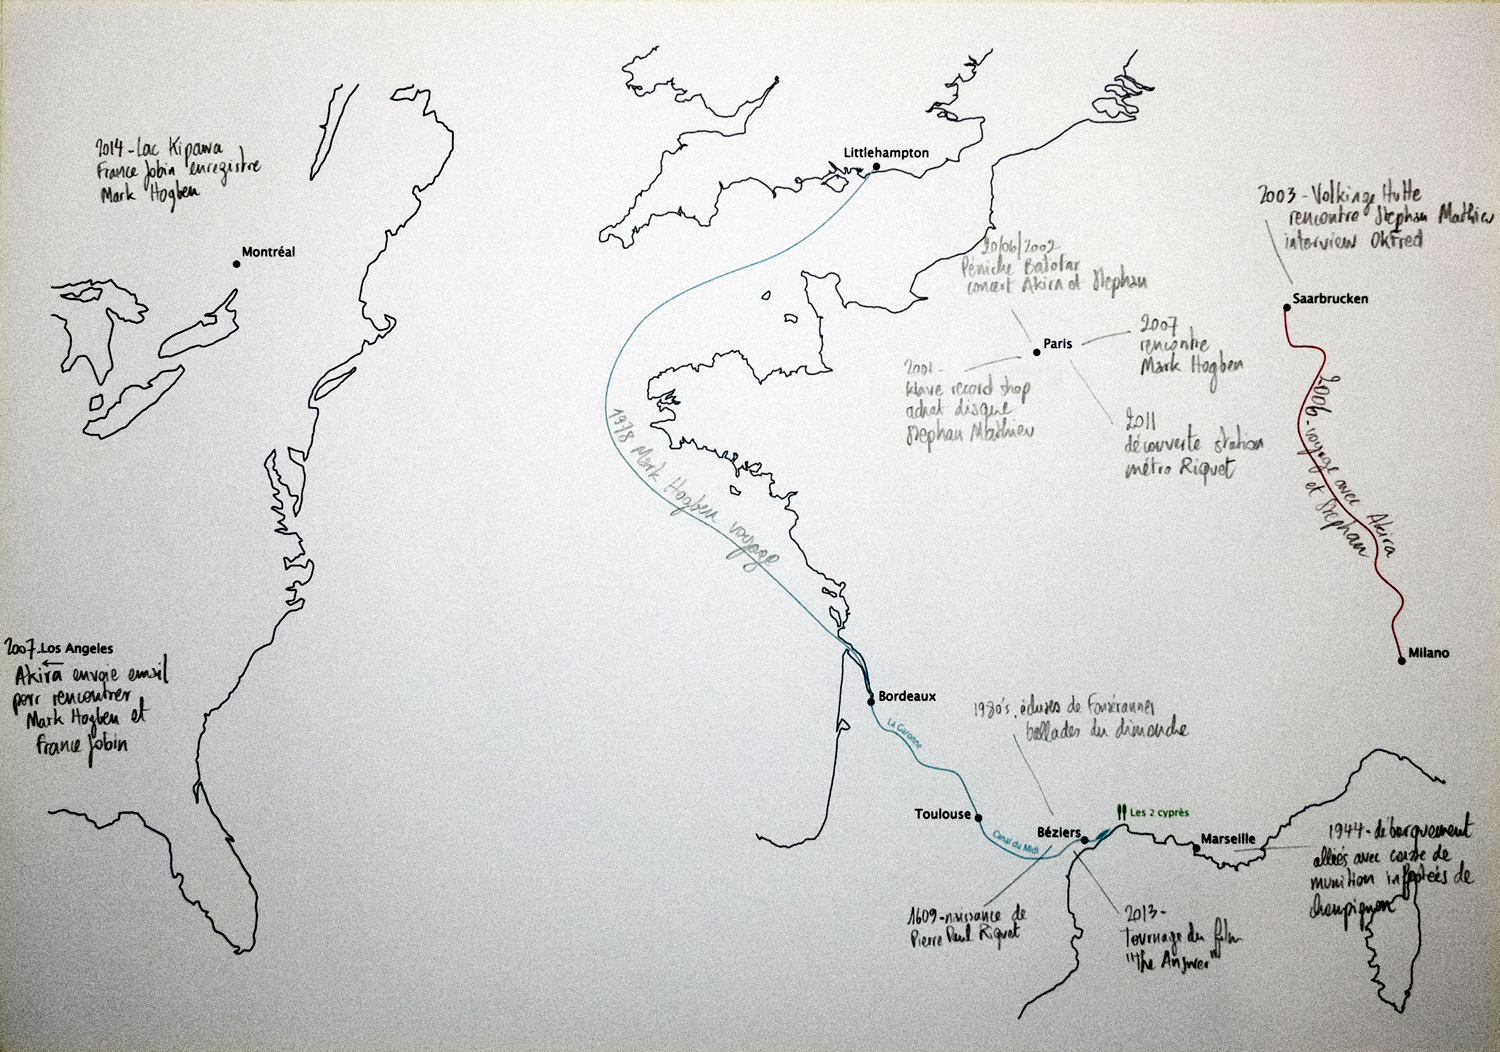 2014 - Lac Kipawa
France Jobin enregistre
Mark Hogben
Montréal
2007 - Los Angeles
Akira envoie email
pour rencontrer
Mark Hogben et
France Jobin
Littlehampton
1978 Mark Hogben voyage
20/06/2002
Péniche Batofar
concert Akira et Stephan
Paris
2007
rencontre
Mark Hogben
2001 -
wave record shop
achat disque
Stephan Mathieu
2011
découverte station
métro Riquet
2003 - Volkinge Hutte
rencontre Stephan Mathieu
interview Okfred
Saarbrucken
2006 - voyage avec Akira
et Stephan
Milano
Bordeaux
La Garonne
Toulouse
Canal du Midi
1980's. écluses de Fonserannes
ballades du dimanche
Béziers
Les 2 cyprès
Marseille
1944 - débarquement
alliés avec caisse de
munition infectées de
champignon
1609 - naissance de
Pierre Paul Riquet
2013 -
Tournage du film
"The Answer"